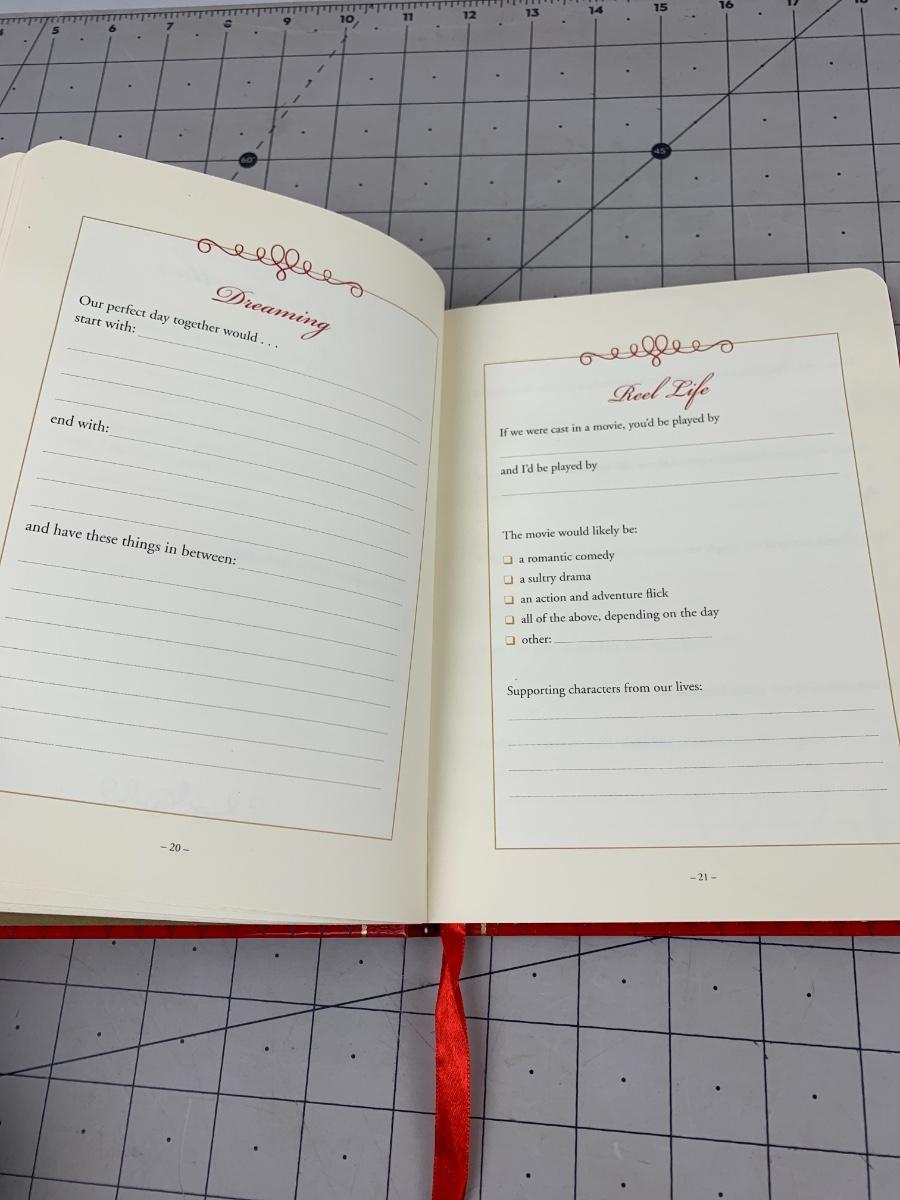 5 6 7 8 9 10 11 12 13 14 15 16 17
60°
45°
Dreaming
Our perfect day together would . . .
start with:
end with:
and have these things in between:
– 20 –
Reel Life
If we were cast in a movie, you'd be played by
and I'd be played by
The movie would likely be:
❑ a romantic comedy
❑ a sultry drama
❑ an action and adventure flick
❑ all of the above, depending on the day
❑ other:
Supporting characters from our lives:
– 21 –